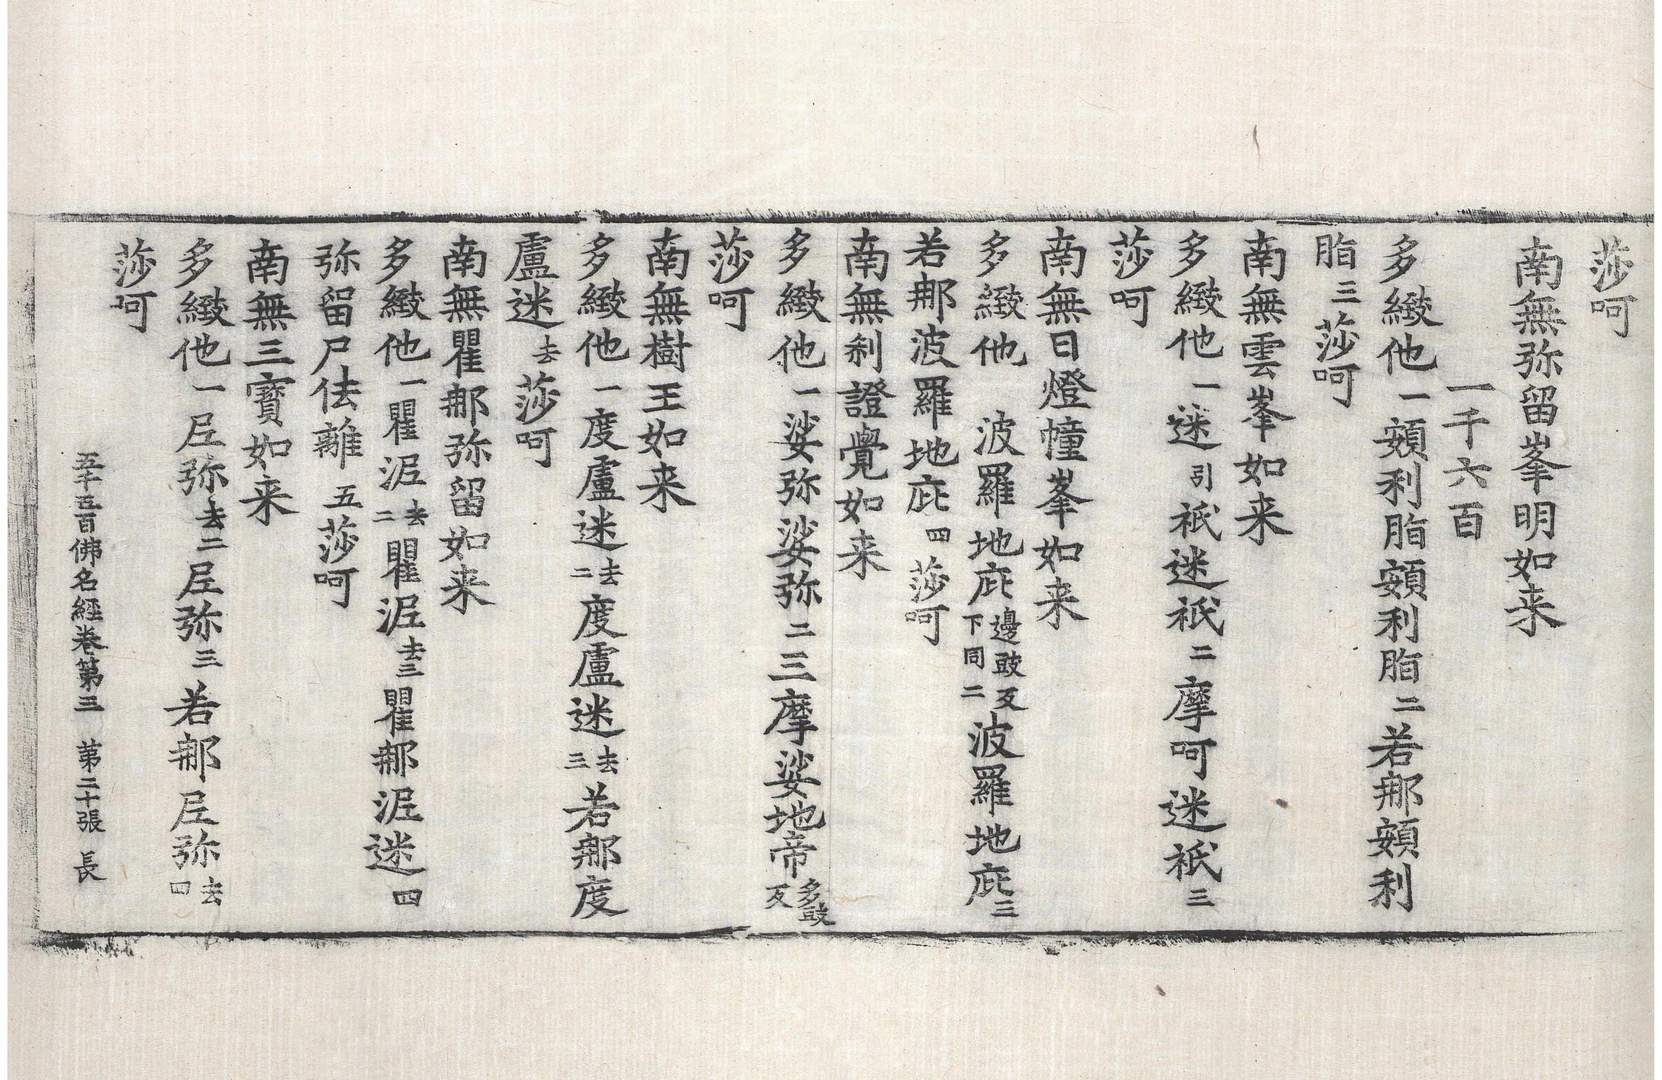 莎呵
南無弥留峯明如来
一千六百
多緻他一頞利脂頞利脂二若那頞利
脂三莎呵
南無雲峯如来
多緻他一迷引祇迷祇二摩呵迷祇三
莎呵
南無日燈幢峯如来
多緻他 波羅地庇邊豉反下同二波羅地庇三
若那波羅地庇四莎呵
南無利證覺如来
多緻他一娑弥娑弥二三摩娑地帝多豉反
莎呵
南無樹王如来
多緻他一度盧迷去二度盧迷去三若那度
盧迷去莎呵
南無瞿那弥留如来
多緻他一瞿泥去二瞿泥去三瞿那泥迷四
弥留尸佉離五莎呵
南無三寶如来
多緻他一尼弥去二尼弥三若那尼弥去四
莎呵
五千五百佛名經卷第三 第二十張 長